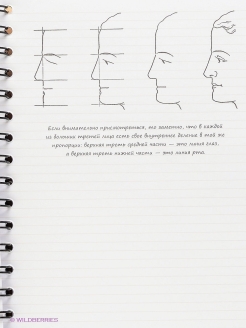 Если внимательно присмотреться, то заметно, что в каждой
из великих третей лица есть свое внутреннее деление в той же
пропорции: верхняя треть средней части — это линия глаз,
а верхняя треть нижней части — это линия рта.
WILDBERRIES